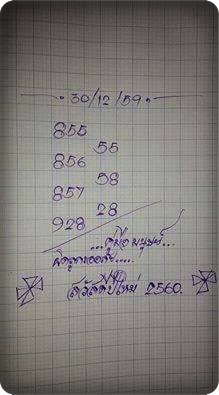 30/12/59
855
55
856
58
857
28
928
...คู่มือ มนุษย์...
ผิดถูกขออภัย.....
สวัสดีปีใหม่ 2560.